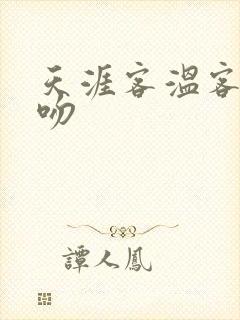 天涯客溫客
吻
譚人鳳